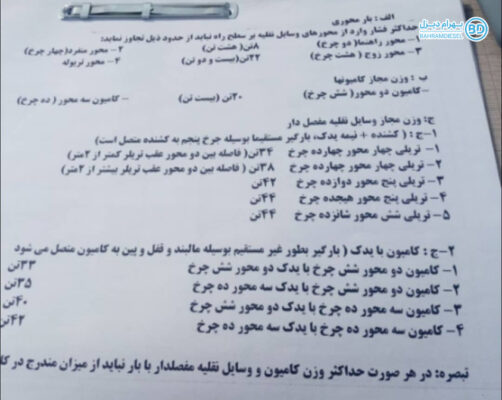 بهرام دیزل
BAHRAMDIESEL
BD
الف : بار محوری
حداکثر فشار وارد از محورهای وسایل نقلیه بر سطح راه نباید از حدود ذیل تجاوز نماید:
۱- محور راهنما( دو چرخ) ۸تن( هشت تن) ۲- محور منفرد(چهار چرخ)
۳- محور زوج ( هشت چرخ) ۲۲تن(بیست و دو تن) ۴- محور تریوله
ب : وزن مجاز کامیونها
-کامیون دو محور( شش چرخ) ۲۰تن (بیست تن) -کامیون سه محور ( ده چرخ)
ج: وزن مجاز وسایل نقلیه مفصل دار
۱-ج : ( کشنده + نیمه یدک، بارگیر مستقیما بوسیله چرخ پنجم به کشنده متصل است)
۱- تریلی چهار محور چهارده چرخ ۳۴تن( فاصله بین دو محور عقب تریلر کمتر از ۲متر)
۲- تریلی چهار محور چهارده چرخ ۳۸تن ( فاصله بین دو محور عقب تریلر بیشتر از ۲متر)
۳- تریلی پنج محور دوازده چرخ ۴۲تن
۴- تریلی پنج محور هیجده چرخ ۴۴تن
۵- تریلی شش محور شانزده چرخ ۴۴تن
۲-ج : کامیون با یدک ( بارگیر بطور غیر مستقیم بوسیله مالبند و قفل و پین به کامیون متصل می شود
۱- کامیون دو محور شش چرخ با یدک دو محور شش چرخ ۳۳تن
۲- کامیون دو محور شش چرخ با یدک سه محور ده چرخ ۳۵تن
۳- کامیون سه محور ده چرخ با یدک دو محور شش چرخ ۴۰تن
۴- کامیون سه محور ده چرخ با یدک سه محور ده چرخ ۴۲تن
تبصره: در هر صورت حداکثر وزن کامیون و وسایل نقلیه مفصلدار با بار نباید از میزان مندرج در